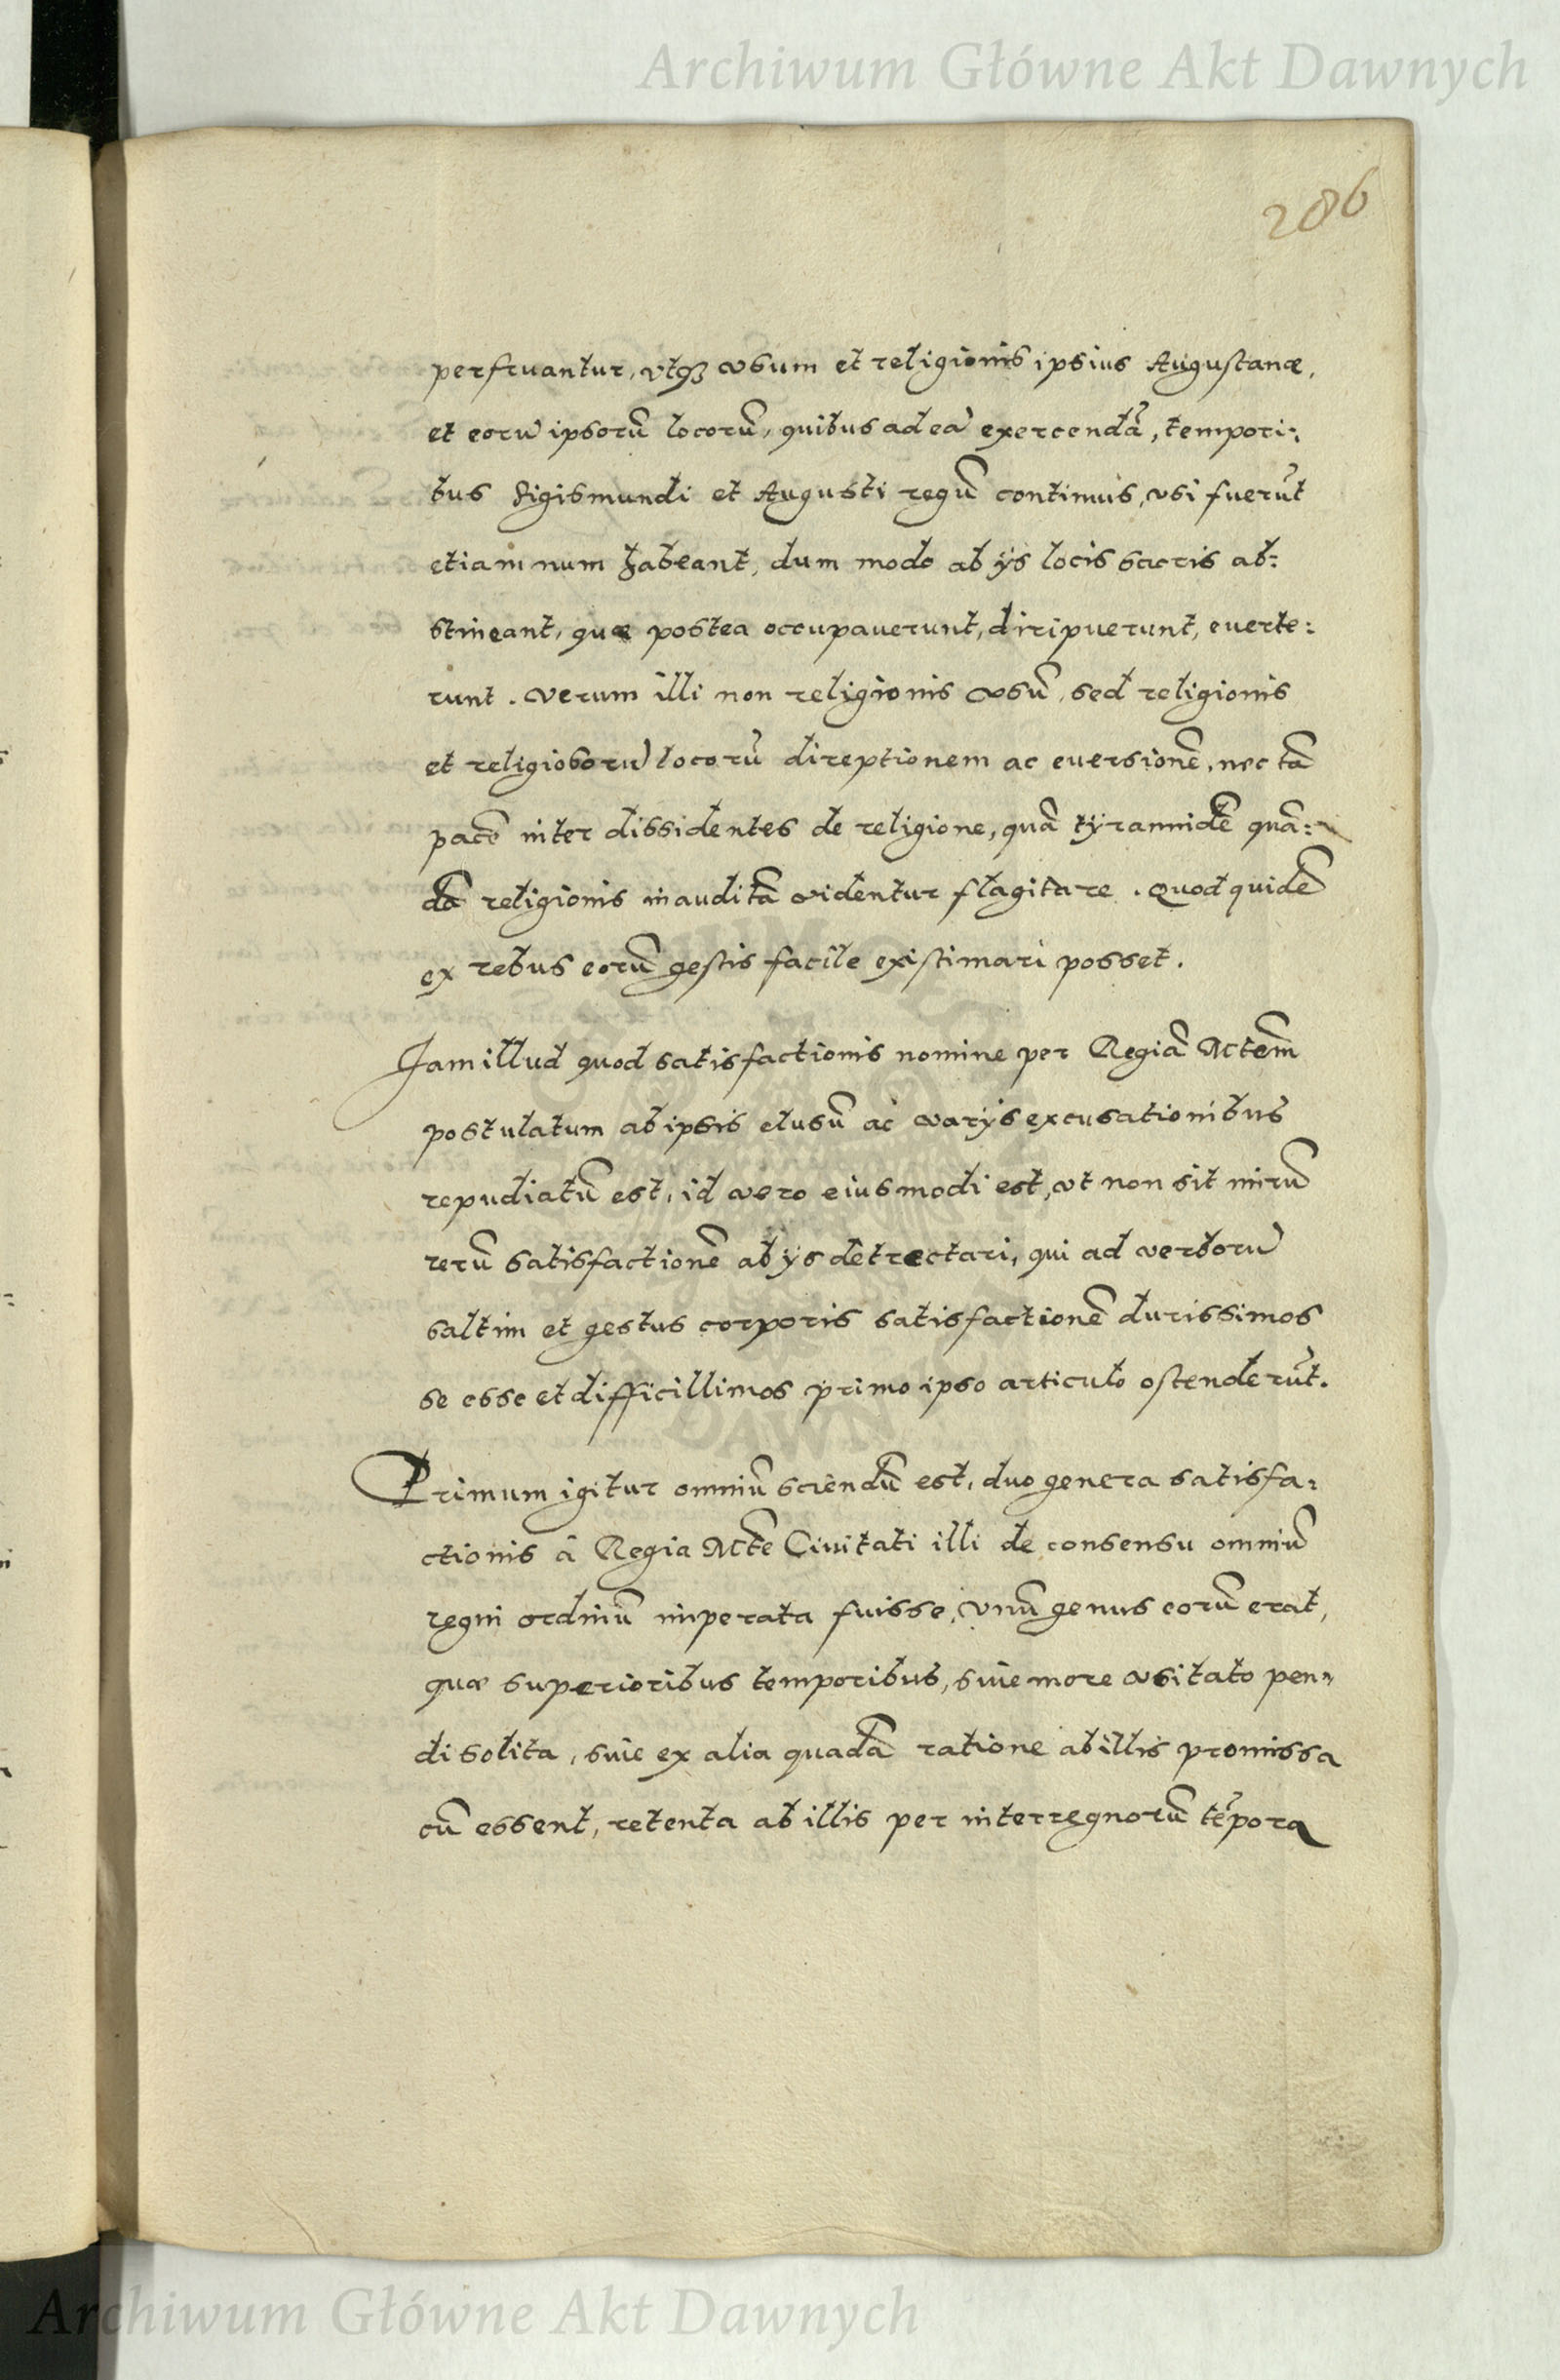 Archiwum Główne Akt Dawnych
286
perfruantur, vtqȝ vsum et religionis ipsius Augustanæ,
et eorū ipsorū locorū, quibus ad eā exercendā, tempori:
bus Sigismundi et Augusti regū continuis, vsi fuerūt
etiam num habeant, dum modo ab ijs locis sacris ab:
stineant, quæ postea occupauerunt, diripuerunt, euerte:
runt. Verum illi non religionis vsū, sed religionis
et religiosorū locorū direptionem ac euersionē, nec tā
pacē inter dissidentes de religione, quā tyrannidē quā:
dā religionis inauditā videntur flagitare. Quod quidē
ex rebus eorū gestis facile existimari posset.
Jam illud quod satisfactionis nomine per Regiā Mtem̄
postulatum ab ipsis elusū ac varijs excusationibus
repudiatū est, id vero eiusmodi est, vt non sit mirū
rerū satisfactionē ab ijs detrectari, qui ad verborū
saltim et gestus corporis satisfactionē durissimos
se esse et difficillimos primo ipso articulo ostenderūt.
Primum igitur omniū sciendū est, duo genera satisfa:
ctionis à Regia Mte Ciuitati illi de consensu omniū
regni ordinū imperata fuisse, vnū genus eorū erat,
quæ superioribus temporibus, siue more vsitato pen„
di solita, siue ex alia quadā ratione ab illis promissa
cū essent, retenta ab illis per interregnorū tēpora
Archiwum Główne Akt Dawnych